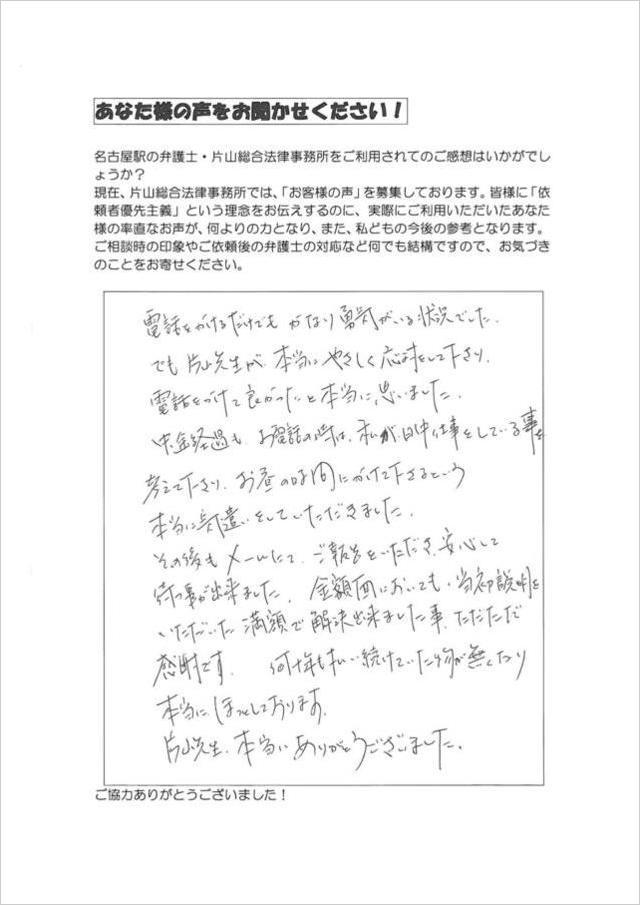 あなた様の声をお聞かせください！
名古屋駅の弁護士・片山総合法律事務所をご利用されてのご感想はいかがでし
ょうか？
現在、片山総合法律事務所では、「お客様の声」を募集しております。皆様に「依
頼者優先主義」という理念をお伝えするのに、実際にご利用いただいたあなた
様の率直なお声が、何よりの力となり、また、私どもの今後の参考となります。
ご相談時の印象やご依頼後の弁護士の対応など何でも結構ですので、お気づき
のことをお寄せください。
電話をかけるだけでも かなり勇気がいる状況でした。
でも 片山先生が 本当に やさしく 応対をして下さり、
電話をかけて良かったと本当に思いました。
経過も、お電話の時は、私が日中仕事をしている事を
考えて下さり、お昼の時間にかけて下さるという
本当に気遣いをしていただきました。
その後も メールにて、ご報告をいただき、安心して
待つ事が出来ました。 金額面においても、当初説明を
いただいた 満額で 解決出来ました事、ただただ
感謝です。 何十年も払い続けていた物が無くなり
本当に ほっとしております。
片山先生、本当に ありがとうございました。
ご協力ありがとうございました！